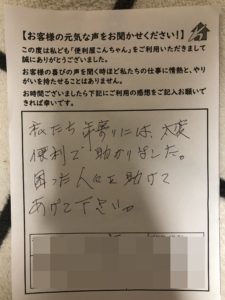 【お客様の元気な声をお聞かせください!】
この度は私ども「便利屋こんちゃん」をご利用いただきまして
誠にありがとうございました。
お客様の喜びの声を聞く時ほど私たちの仕事に情熱と、やり
がいを持たせることはありません。
お時間ございましたら下記にご利用の感想をご記入お願いで
きれば幸いです。
私たち年寄りには大変
便利で助かりました。
困った人々を助けて
あげて下さい。